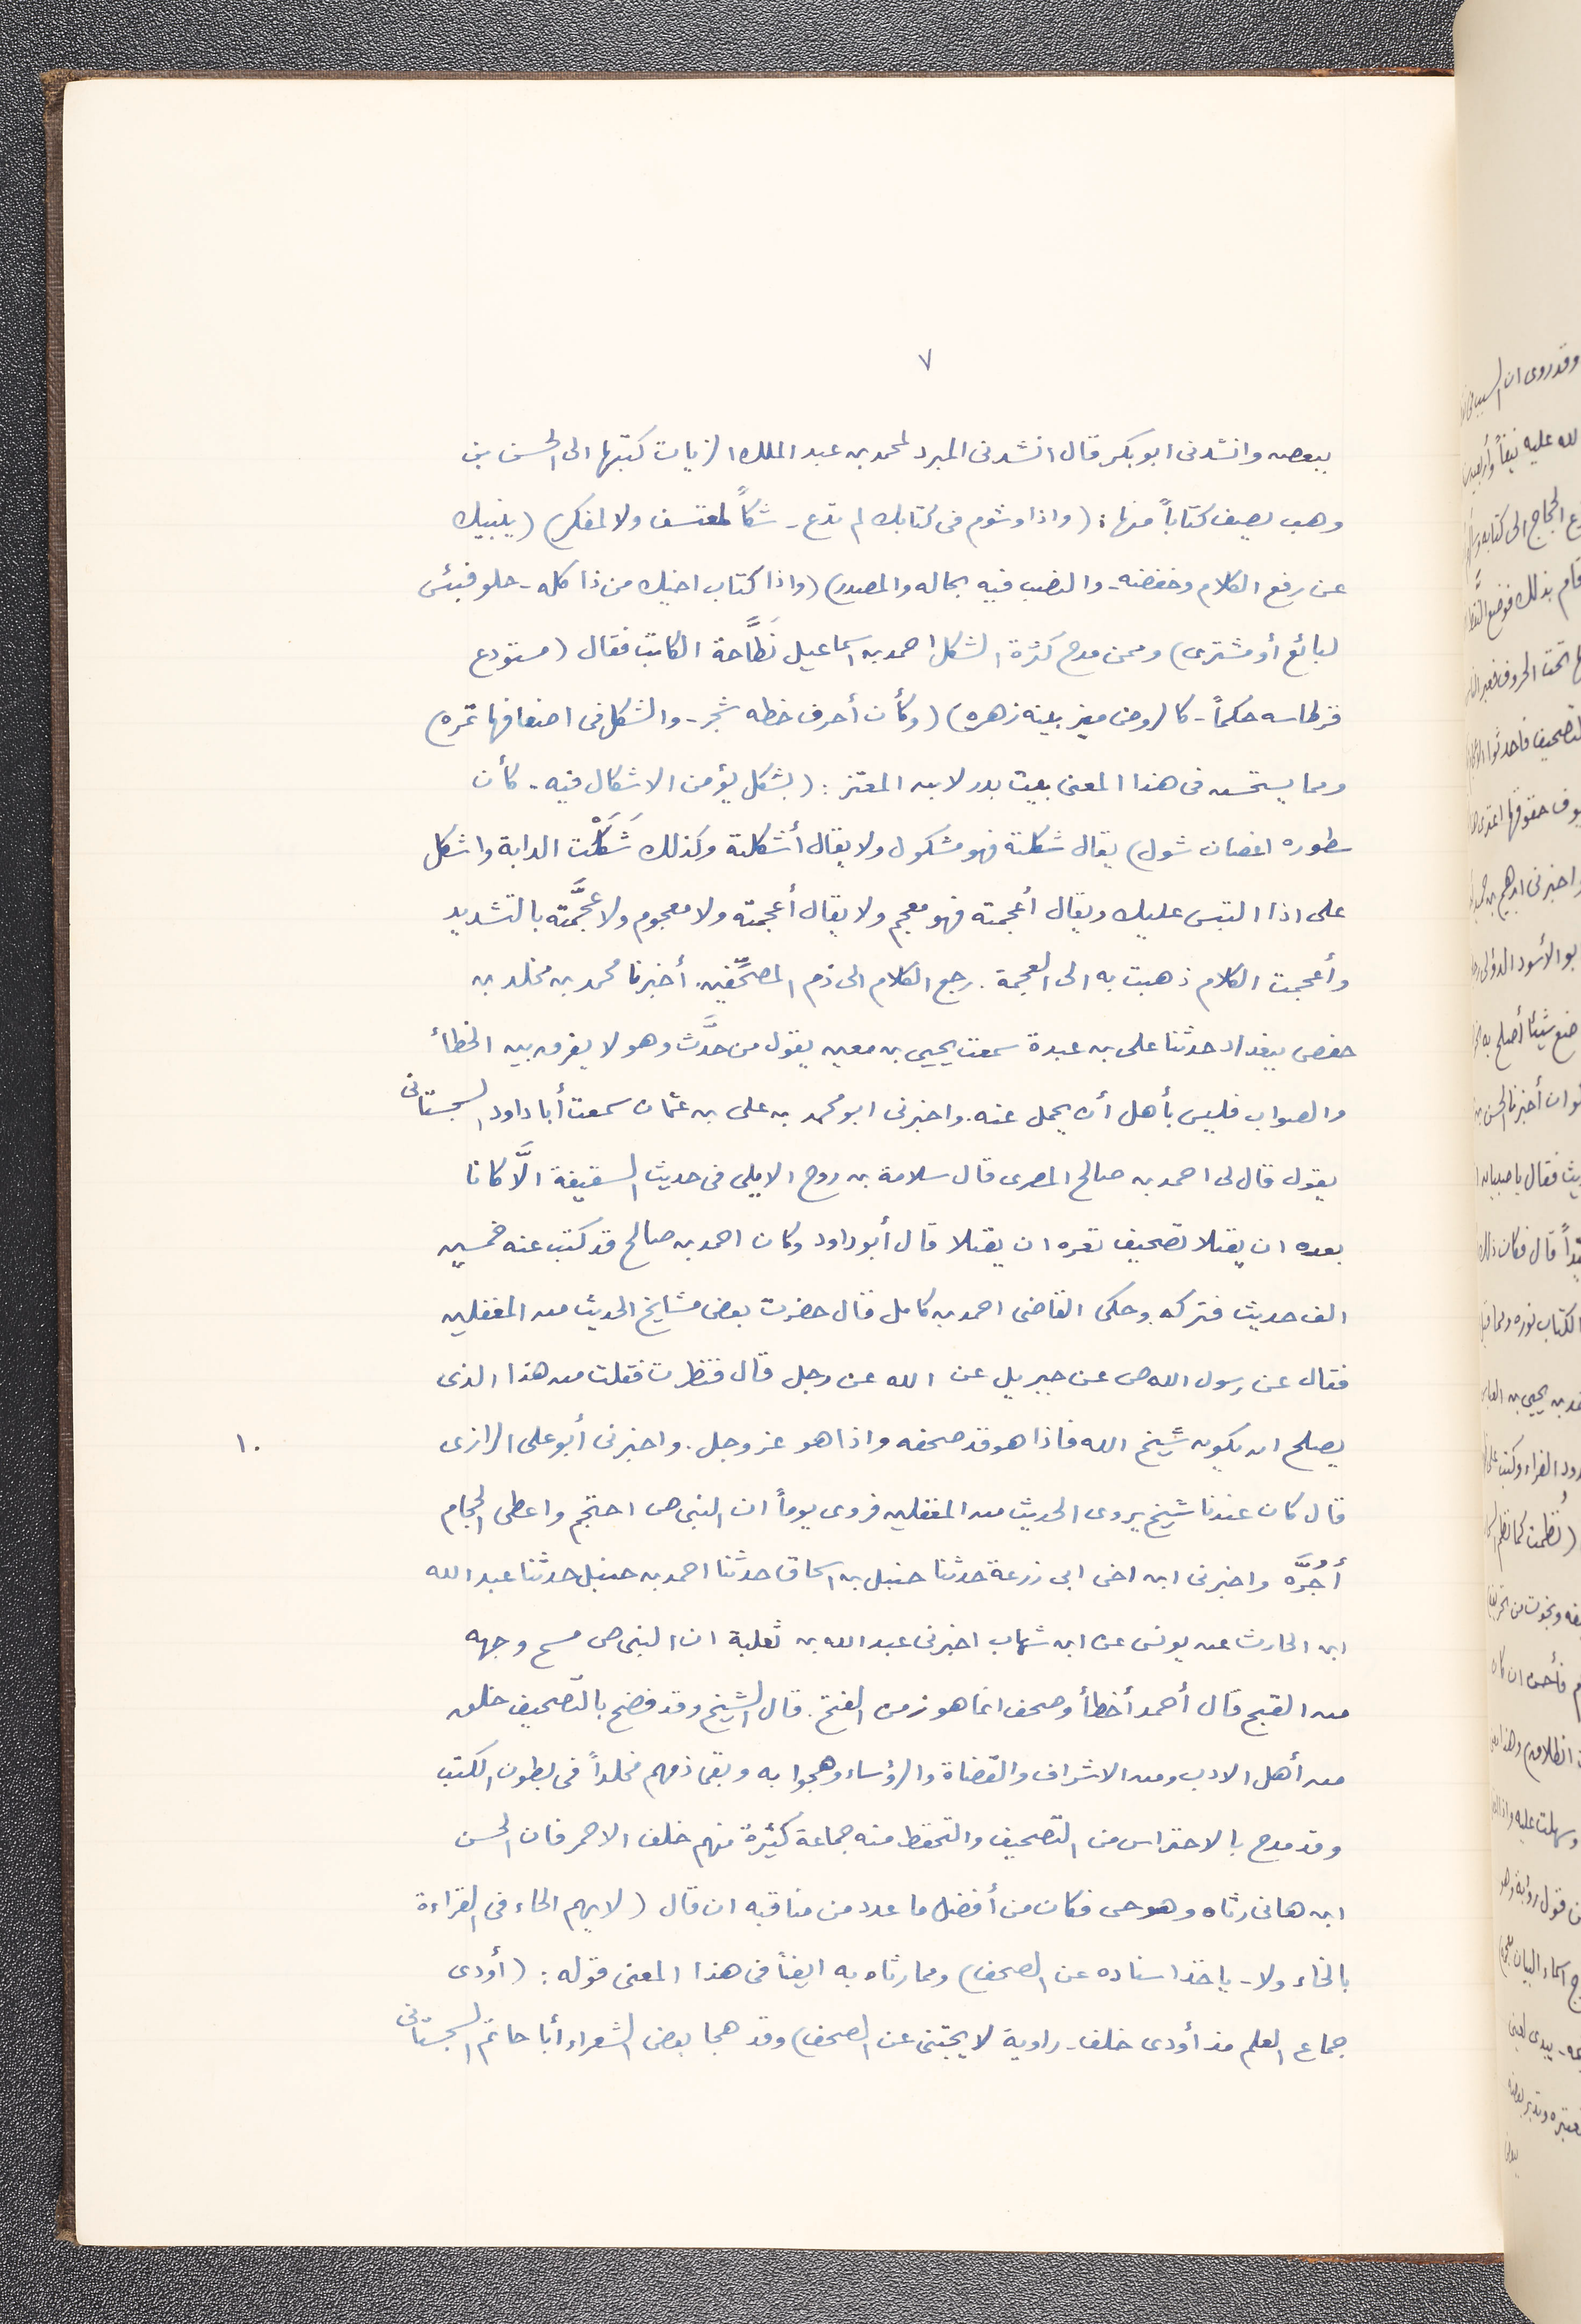 ٧
ببعصه وانشدنى ابو بكر قال انشدنى المبرد لمحمد بن عبد الملك الزيات كتبها الى الحسن بن
وهب يصف كتاباً منها: (واذا وشوم فى كتابك لم تدع - شكاً لمعتسف ولا لمفكر) (ينبيك
عن رفع الكلام وخفضه - والنصب فيه بحاله والمصدر) (واذا كتاب اخيك من ذا كله - خلو فبئس
لبائع أو مشترى) وممن مدح كثرة الشكل احمد بن اسماعيل نَطَّاحة الكاتب فقال (مستودع
قرطاسه حكماً - كالروض ميز بينه زهره) (وكأن أحرف خطه شجر - والشكل فى اضعافها ثمره)
ومما يستحسن فى هذا المعنى بيت بدر لابن المعتز: (بشكل يؤمن الاشكال فيه - كأن
سطوره اغصان شوك) يقال شكلته فهو مشكول ولا يقال أشكلته وكذلك شَكَلْت الدابة واشكل
على اذا التبس عليك ويقال أعجمته فهو معجم ولا يقال أعجمته ولا معجوم ولا عجَّمته بالتشديد
وأعجمت الكلام ذهبت به الى العجمة. رجع الكلام الى ذم المصحِّفين. أخبرنا محمد بن مخلد بن
حفص ببغداد حدثنا على بن عبدة سمعت يحيى بن معين يقول من حدَّث وهو لا يفرق بين الخطأ
والصواب فليس بأهل أن يحمل عنه. واخبرنى ابو محمد بن على بن عثمان سمعت أبا داود السجستانى
يقول قال لى احمد بن صالح المصرى قال سلامة بن روح الايلى فى حديث السقيفة الَّا كانا
بعده ان يقتلا تصحيف تغره ان يقتلا قال أبو داود وكان احمد بن صالح قد كتب عنه خمسين
الف حديث فتركه. وحكى القاضى احمد بن كامل قال حضرت بعض مشايخ الحديث من المغفلين
فقال عن رسول الله ص عن جبريل عن الله عن رجل قال فنظرت فقلت من هذا الذى
يصلح ان يكون شيخ الله فاذا هو قد صحفه واذا هو عز وجل. واخبرنى أبو على الرازى
١٠
قال كان عندنا شيخ يروى الحديث من المغفلين فروى يوماً ان النبى ص احتجم واعطى الحجام
أجُرَّه واخبرنى ابن اخى ابى زرعة حدثنا حنبل بن اسحاق حدثنا احمد بن حنبل حدثنا عبد الله
ابن الحارث عن يونس عن ابن شهاب اخبرنى عبد الله بن ثعلبة ان النبى ص مسح وجهه
من القيح قال أحمد أخطأ وصحف انما هو زمن الفتح. قال الشيخ وقد فضح بالتصحيف خلق
من أهل الادب ومن الاشراف والقضاة والرؤساء وهجوا به وبقى ذمهم مخلداً فى بطون الكتب
وقد مدح بالاحتراس من التصحيف والتحفظ منه جماعة كثيرة منهم خلف الاحمر فان الحسن
ابن هانى رثاه وهو حى فكان من أفضل ما عدد من مناقبه ان قال (لا يهم الحاء فى القراءة
بالخاء ولا - ياخذ اسناده عن الصحف) ومما رثاه به ايضاً فى هذا المعنى قوله: (أودى
جماع العلم مذ أودى خلف - راوية لا يجتنى عن الصحف) وقد هجا بعض الشعراء أبا حاتم السجستانى